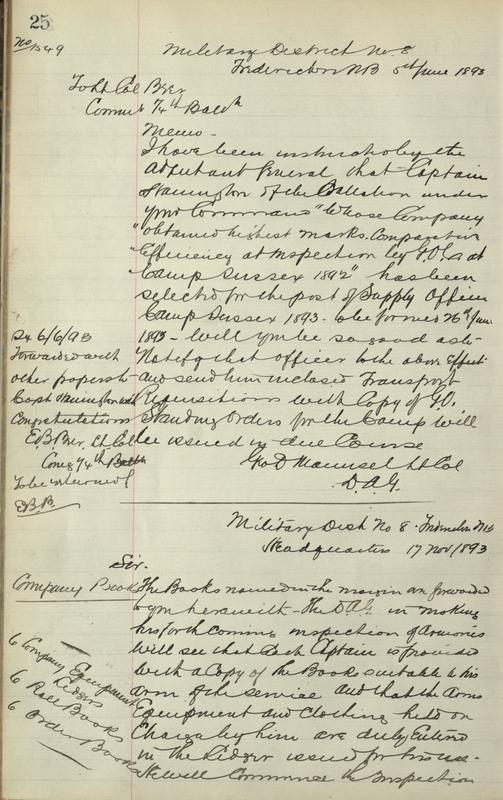 25
No 1549
Military District No. 8
Fredericton NB 5th June 1893
To Lt Col Beer
Comdg 74th Battn
Memo -
I have been instructed by the
Adjutant General that Captain
of the Battalion under
your Command "whose Company
"obtained highest marks. Comparative
"Efficiency at inspection by G.O. at
"Camp Sussex 1892" has been
selected for the post of Supply Officer
Camp Sussex 1893 - to be formed 26th June
1893 - Will you be so good as to
Notify that officer to the above Effect
and send him inclosed Transport
Requisitions with Copy of G.O.
Standing Orders for the Camp will
be issued in due Course
Geo D Maunsel Lt Col
D.A.G.
Sx 6/6/93
Forwarded with
other papers to
Capt with
Congratulations
E.B. Beer, Lt Col
Comg 74th Battn
To be returned
E.B.B.
Military Dist No 8 - Fredericton NB
Headquarters 17 Nov/1893
Sir.
Company Books
The Books named in the margin are forwarded
to you herewith - The D.A.G. in making
his forthcoming inspection of Armories
will see that each Captain is provided
with a Copy of the Books suitable to his
arm of the service and that the Arms
Equipment and Clothing held on
Charge by him are duly Entered
in the Ledger issued for his use -
He will Commence the Inspection
6 Company Equipment
Ledgers
6 Roll Books
6 Order Books